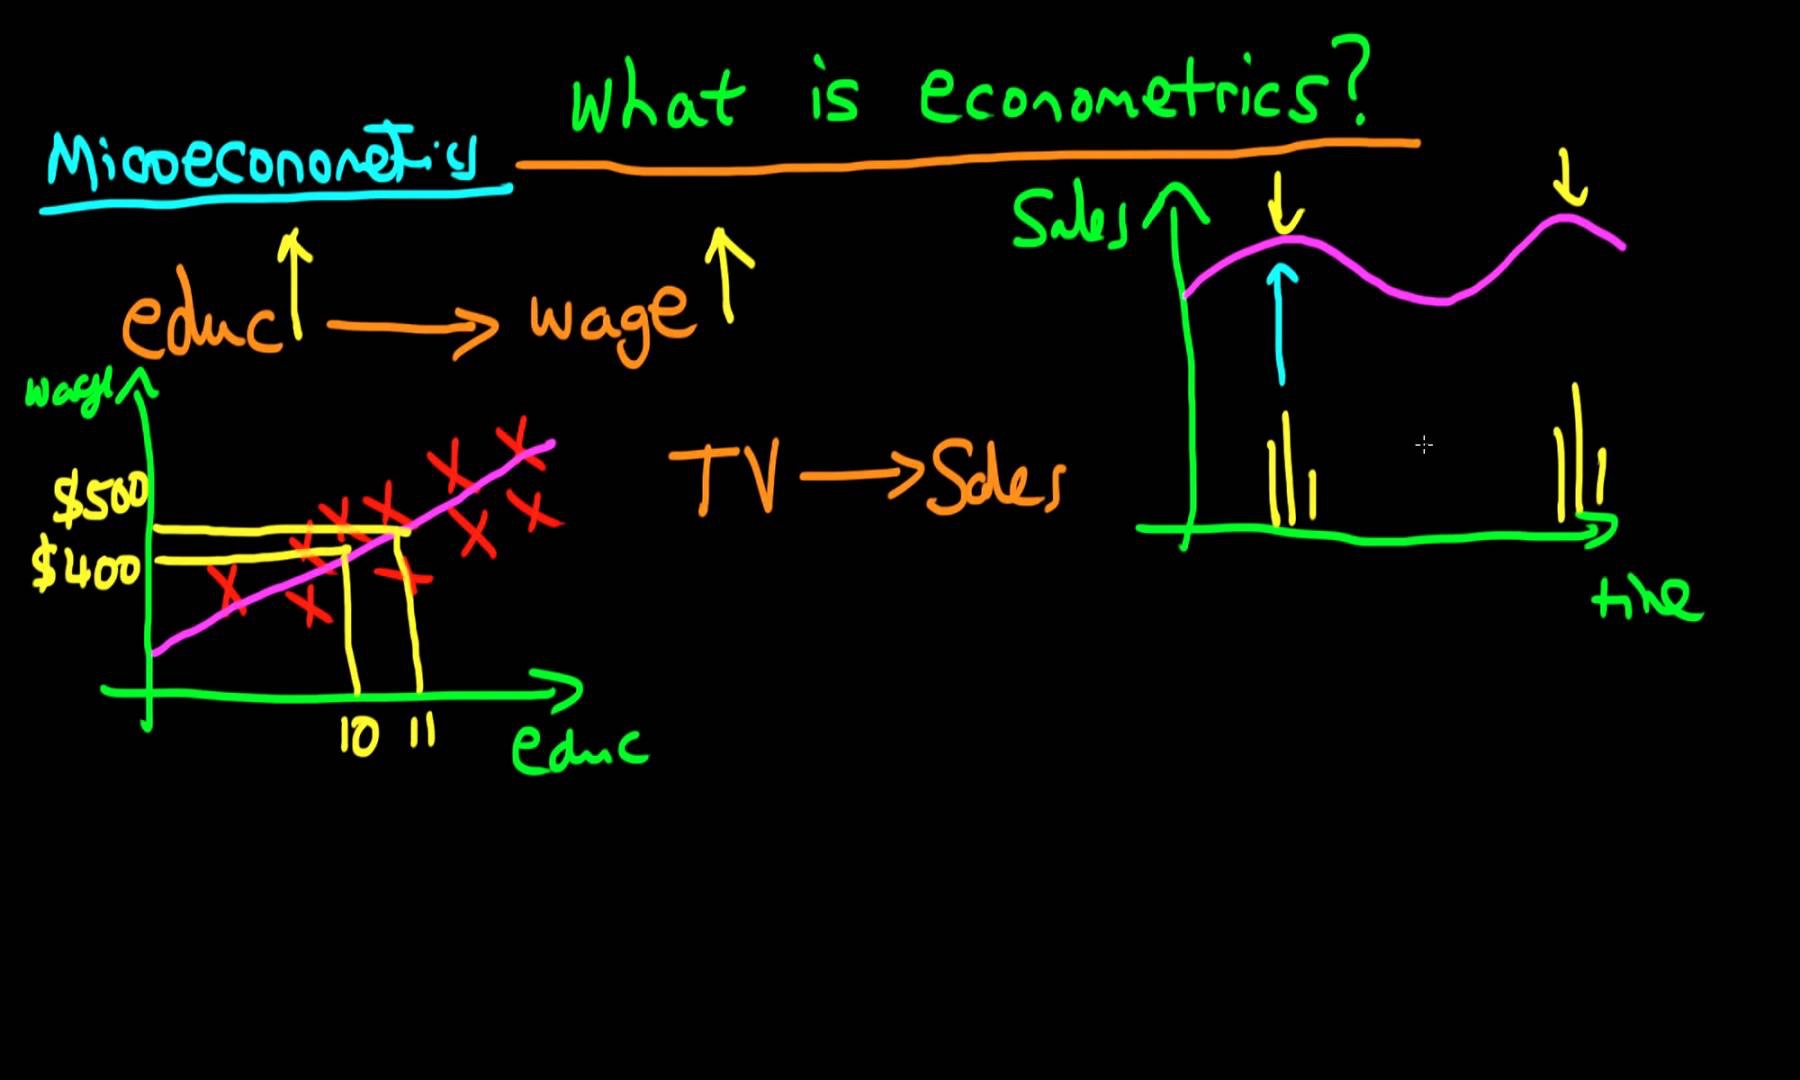 What is econometrics?
Microeconometrics
educ → wage
Sales
wage
$500
$400
10 11
educ
TV → Sales
time